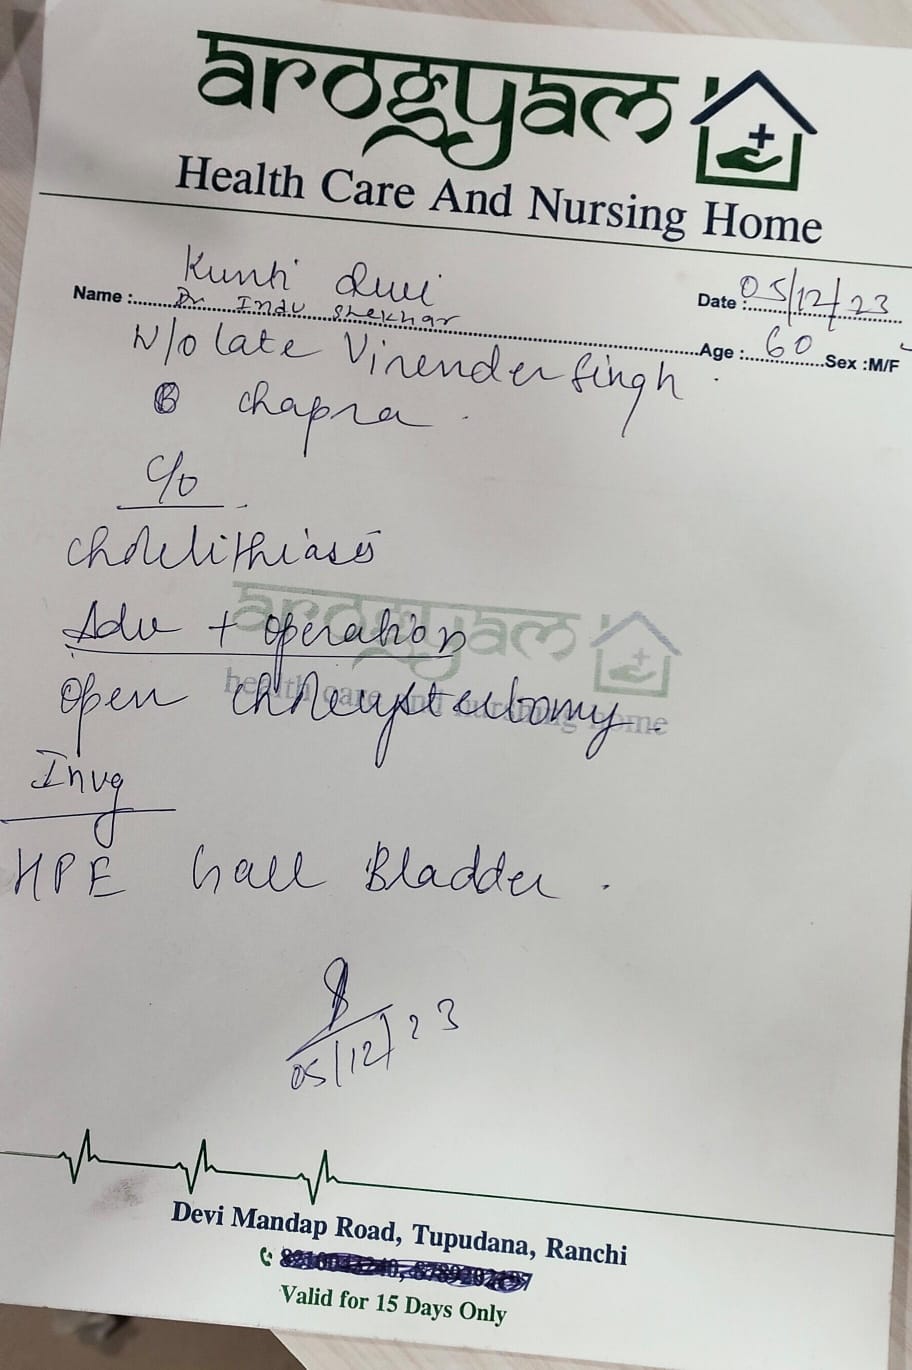 arogyam
Health Care And Nursing Home
Name :........ Kunti Devi
Dr Indu Shekhar
Date : 05/12/23
Age : 60 Sex :M/F
W/o late Virender Singh
chapra
C/o
Cholelithiasis
Adv + operation
arogyam
health care and nurshing home
open cholecystectomy
Invg
HPE Gall Bladder
05/12/23
Devi Mandap Road, Tupudana, Ranchi
Valid for 15 Days Only